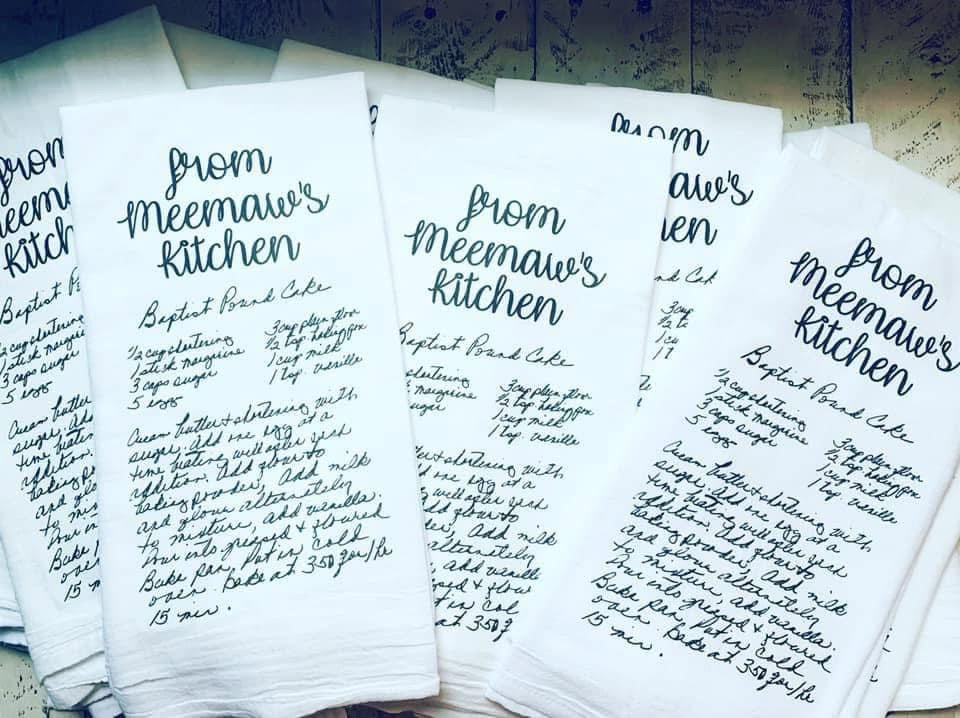 from
Meemaw's
kitchen
Baptist P
1/2 cup shortening
1 stick margarine
3 cups sugar
5 eggs
Cream butter
sugar. Add
time beating
addition.
baking po
and flo
to mi
Pour in
Bake p
oven
15 m
from
Meemaw's
kitchen
Baptist Pound Cake
1/2 cup shortening 3 cup plain flour
1 stick margarine 1/2 tsp baking pow
3 cups sugar 1 cup milk
5 eggs 1 tsp. vanilla
Cream butter + shortening with
sugar. Add one egg at a
time beating well after each
addition. Add flour to
baking powder, Add milk
and flour alternately
to mixture, add vanilla.
Pour into greased & floured
Bake pan, Put in cold
oven. Bake at 350 for 1 hr
15 min.
from
Meemaw's
kitchen
Baptist Pound Cake
shortening 3 cup plain flour
margarine 1/2 tsp baking pow
sugar 1 cup milk
1 tsp. vanilla
ter + shortening with
one egg at a
well after each
Add flour to
der, Add milk
alternately
, add vanilla
greased & flour
t in cold
at 350 f
from
aw's
en
nd Cake
3 cup
1/2 ts
1 cup
1 t
from
Meemaw's
kitchen
Baptist Pound Cake
1/2 cup shortening 3 cup plain flour
1 stick margarine 1/2 tsp baking pow
3 cups sugar 1 cup milk
5 eggs 1 tsp. vanilla
Cream butter + shortening with
sugar. Add one egg at a
time beating well after each
addition. Add flour to
baking powder, Add milk
and flour alternately
to mixture, add vanilla.
Pour into greased & floured
Bake pan, Put in cold
oven. Bake at 350 for 1 hr
15 min.